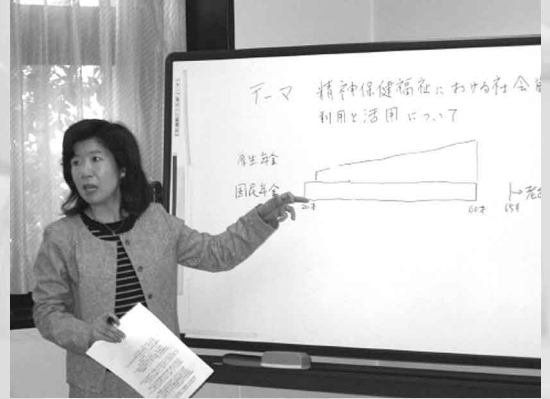 テーマ 精神保健福祉における社会資
利用と活用について
厚生年金
国民年金
20才
60才
65才